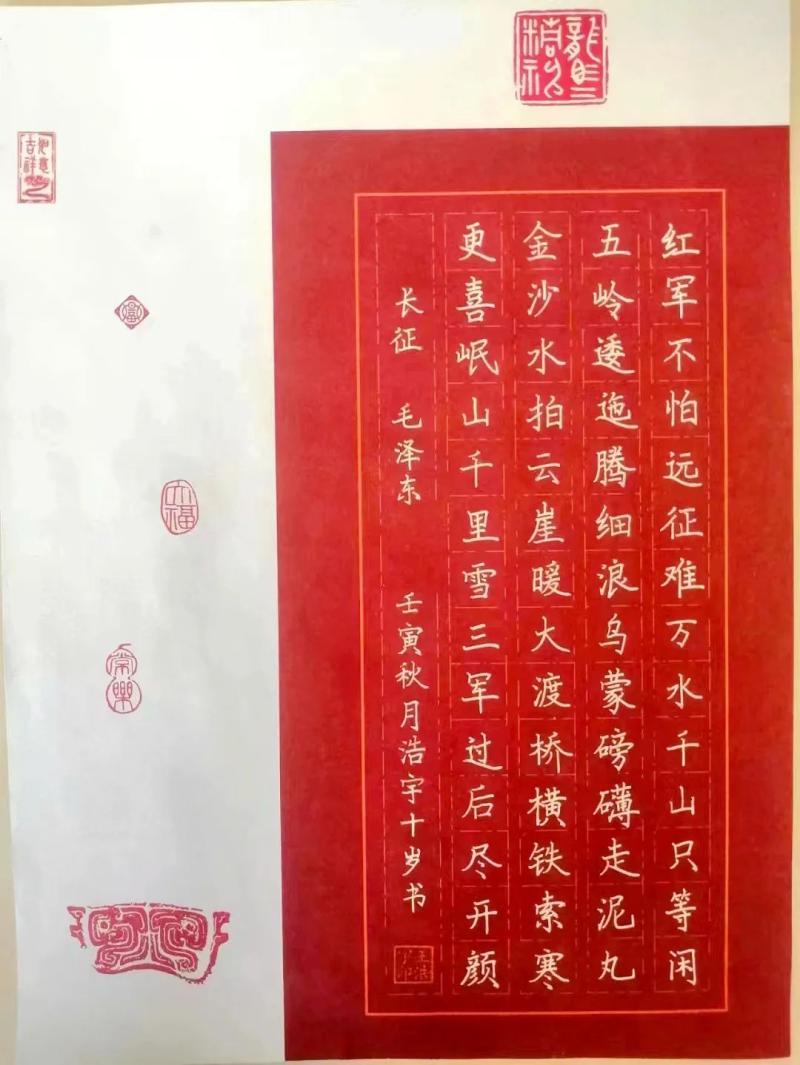 红军不怕远征难万水千山只等闲
五岭逶迤腾细浪乌蒙磅礴走泥丸
金沙水拍云崖暖大渡桥横铁索寒
更喜岷山千里雪三军过后尽开颜
长征 毛泽东 壬寅秋月浩宇十岁书
如意吉祥
大福
常乐